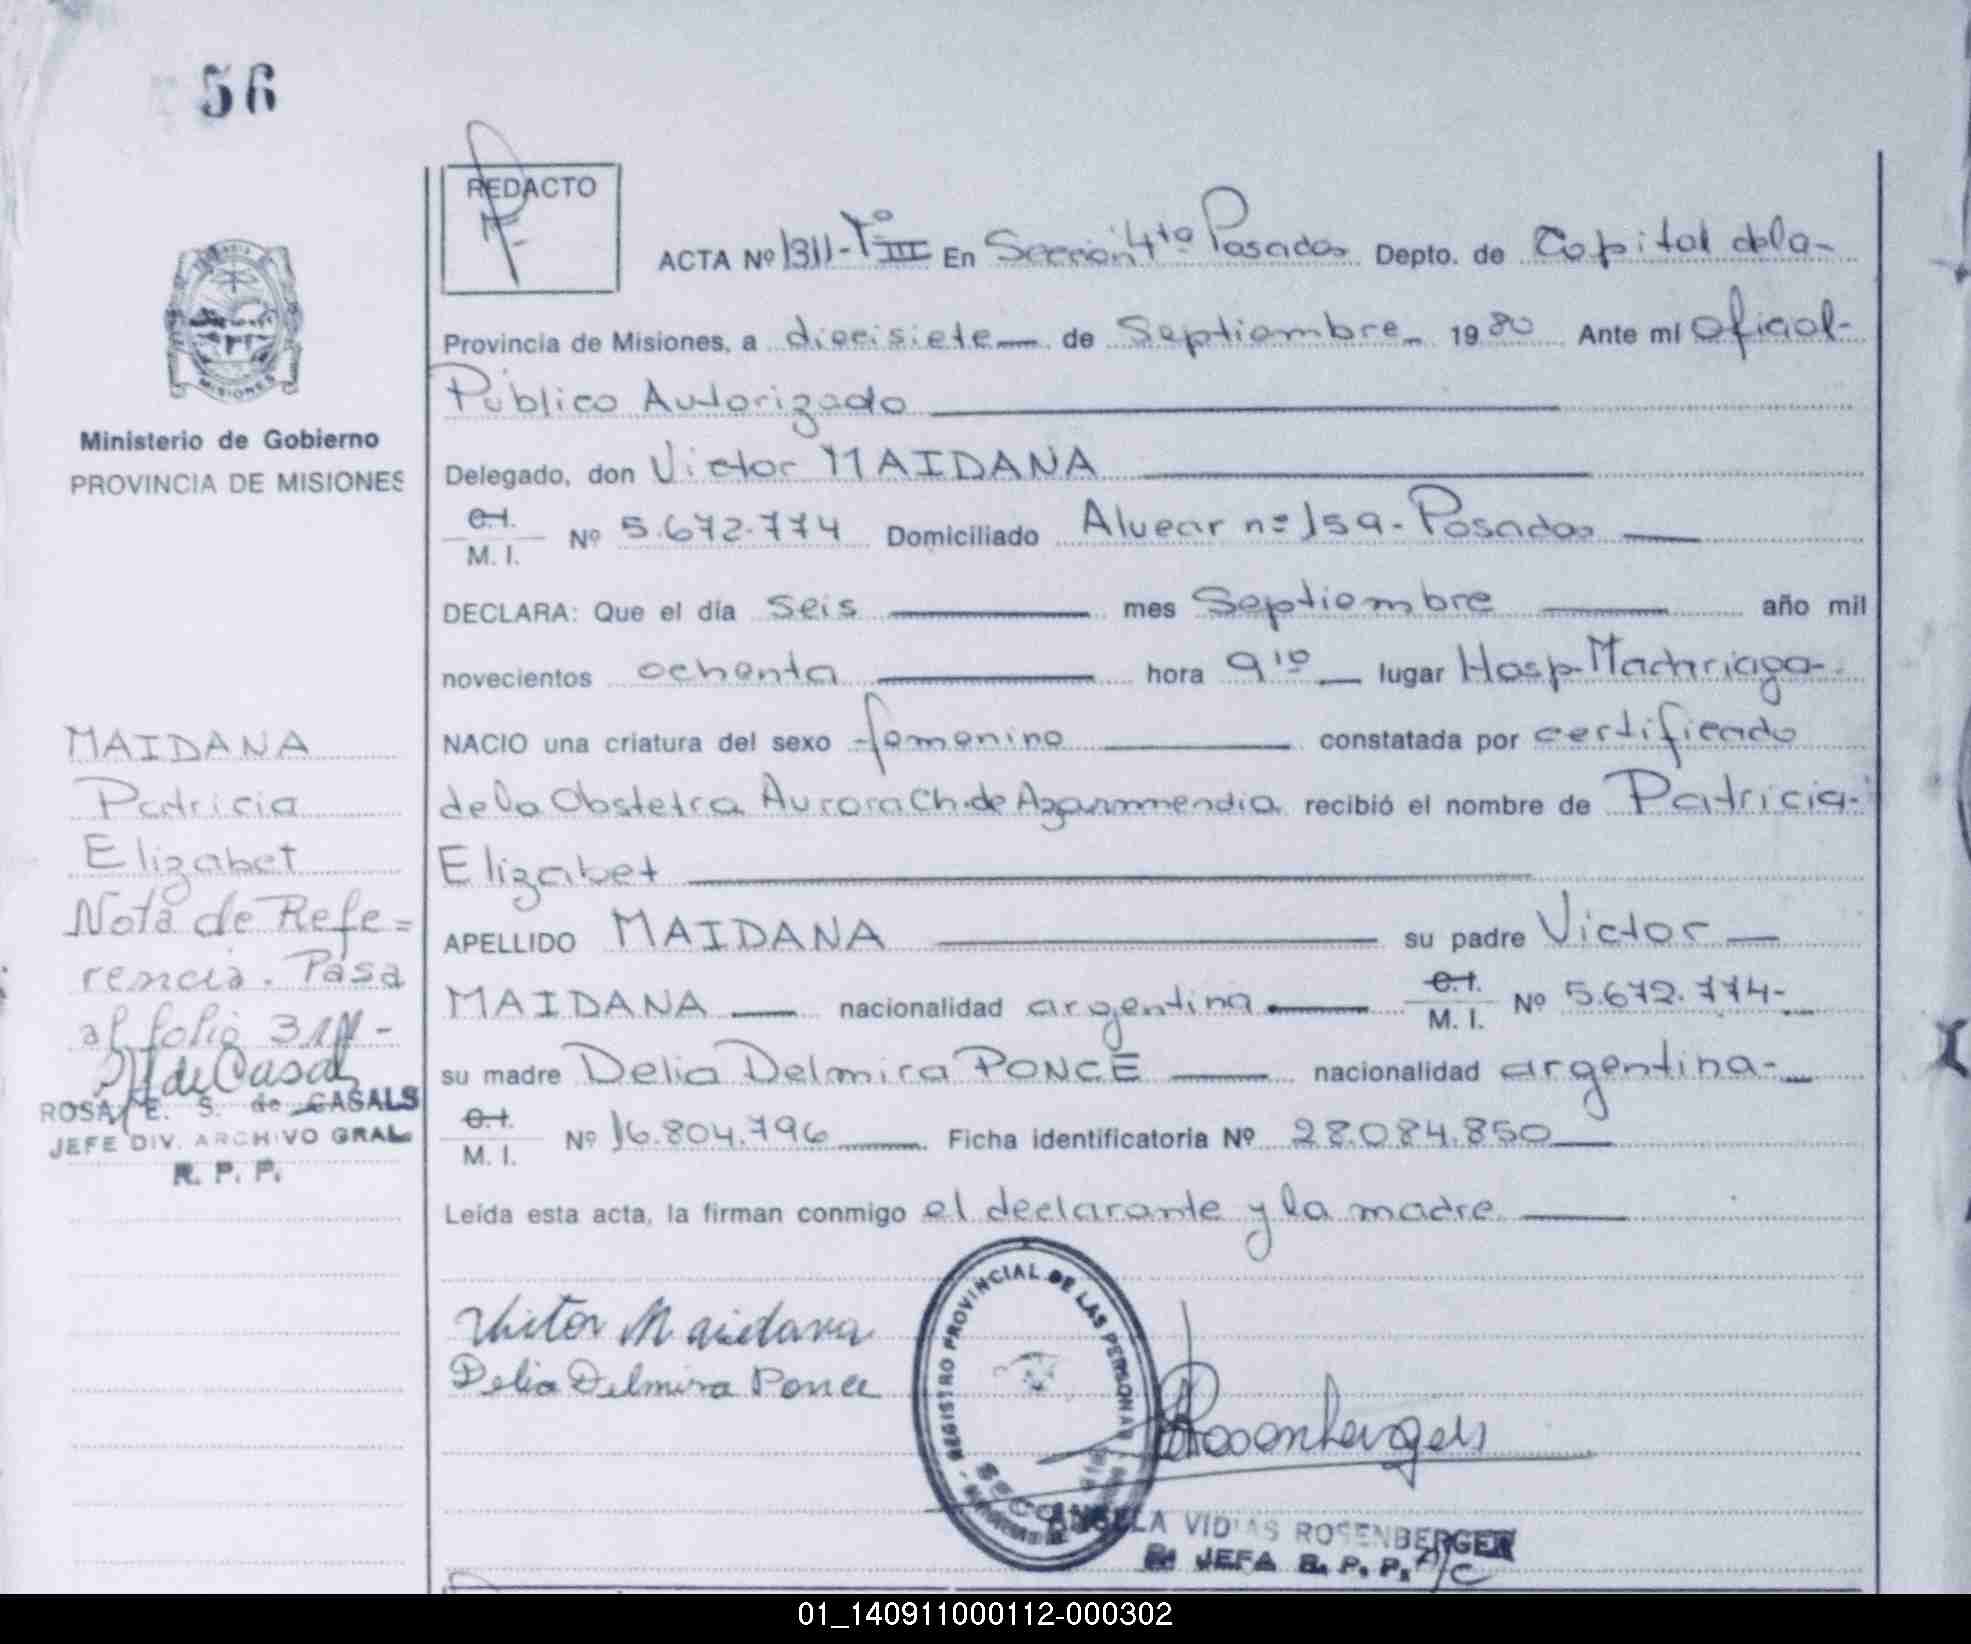 56
REDACTO
ACTA Nº 1311-Tº III En Sección 4ta Posadas Depto. de Capital de la-
Provincia de Misiones, a diecisiete de Septiembre 1980 Ante mí Oficial-
Público Autorizado
Delegado, don Victor MAIDANA
C.I.
M. I. Nº 5.672.774 Domiciliado Alvear nº 159- Posadas
DECLARA: Que el día seis mes Septiembre año mil
novecientos ochenta hora 9 10 lugar Hosp. Madriaga-
NACIO una criatura del sexo femenino constatada por certificado
de la Obstetra Aurora Ch. de recibió el nombre de Patricia-
Elizabet
APELLIDO MAIDANA su padre Victor
MAIDANA nacionalidad argentina C.I. M. I. Nº 5.672.774-
su madre Delia Delmira PONCE nacionalidad argentina-
C.I.
M. I. Nº 16.804.796 Ficha identificatoria Nº 28.084.850
Leída esta acta, la firman conmigo el declarante y la madre
Victor Maidana
Delia Delmira Ponce
REGISTRO PROVINCIAL DE LAS PERSONAS
Rosenberger
ANGELA VIDIAS ROSENBERGER
JEFA R. P. P. A/C
MISIONES
Ministerio de Gobierno
PROVINCIA DE MISIONES
MAIDANA
Patricia
Elizabet
Nota de Refe=
rencia. Pasa
al folio
de Casals
ROSA E. S. de CASALS
JEFE DIV. ARCHIVO GRAL
R. P. P.
01_140911000112-000302